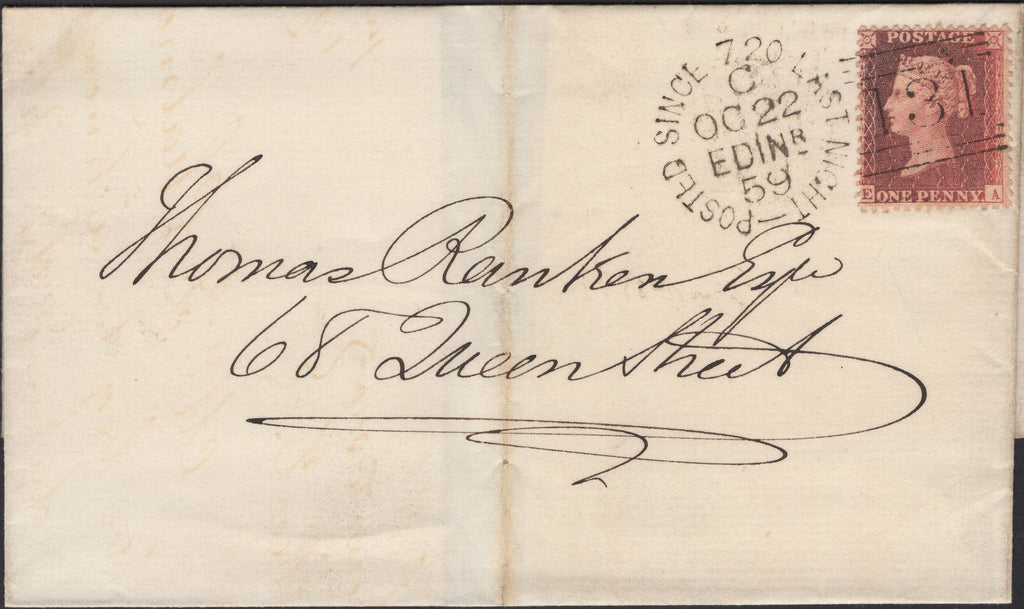 POSTED SINCE 7.20 LAST NIGHT
C
OC 22
EDINR
59
POSTAGE
131
E ONE PENNY A
Thomas Ranken Esqr
68 Queen Street